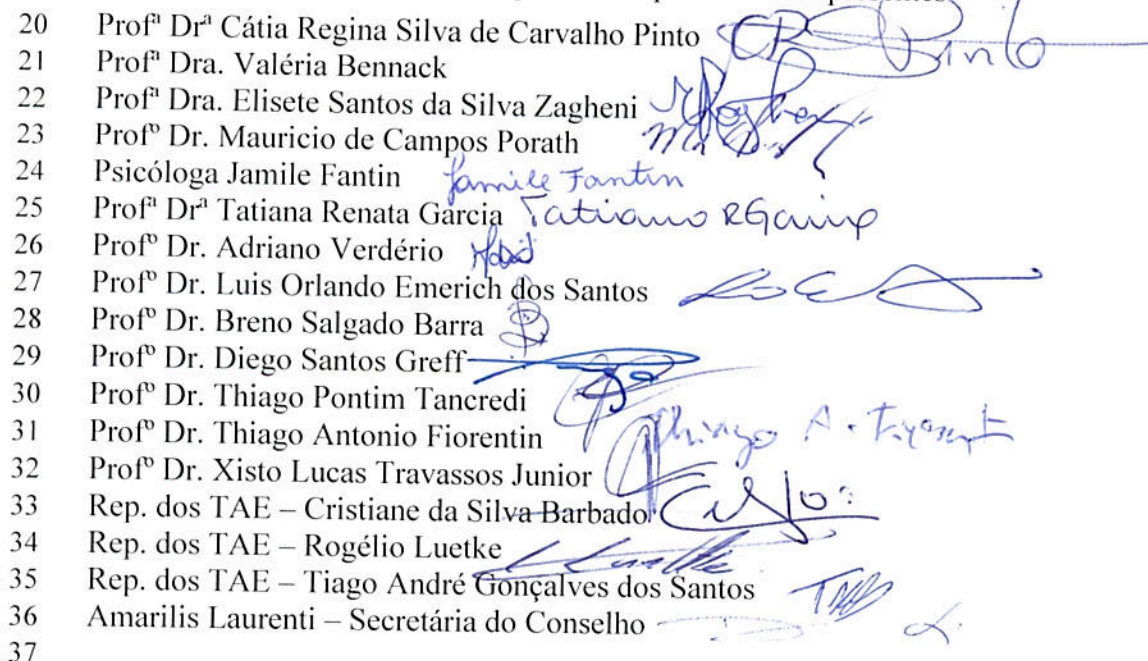 20 Profª Drª Cátia Regina Silva de Carvalho Pinto Pinto
21 Profª Dra. Valéria Bennack
22 Profª Dra. Elisete Santos da Silva Zagheni
23 Profº Dr. Mauricio de Campos Porath
24 Psicóloga Jamile Fantin Jamile Fantin
25 Profª Drª Tatiana Renata Garcia Tatiana RGarcia
26 Profº Dr. Adriano Verdério
27 Profº Dr. Luis Orlando Emerich dos Santos
28 Profº Dr. Breno Salgado Barra
29 Profº Dr. Diego Santos Greff
30 Profº Dr. Thiago Pontim Tancredi
31 Profº Dr. Thiago Antonio Fiorentin Thiago A.
32 Profº Dr. Xisto Lucas Travassos Junior
33 Rep. dos TAE – Cristiane da Silva Barbado
34 Rep. dos TAE – Rogélio Luetke
35 Rep. dos TAE – Tiago André Gonçalves dos Santos
36 Amarilis Laurenti – Secretária do Conselho
37